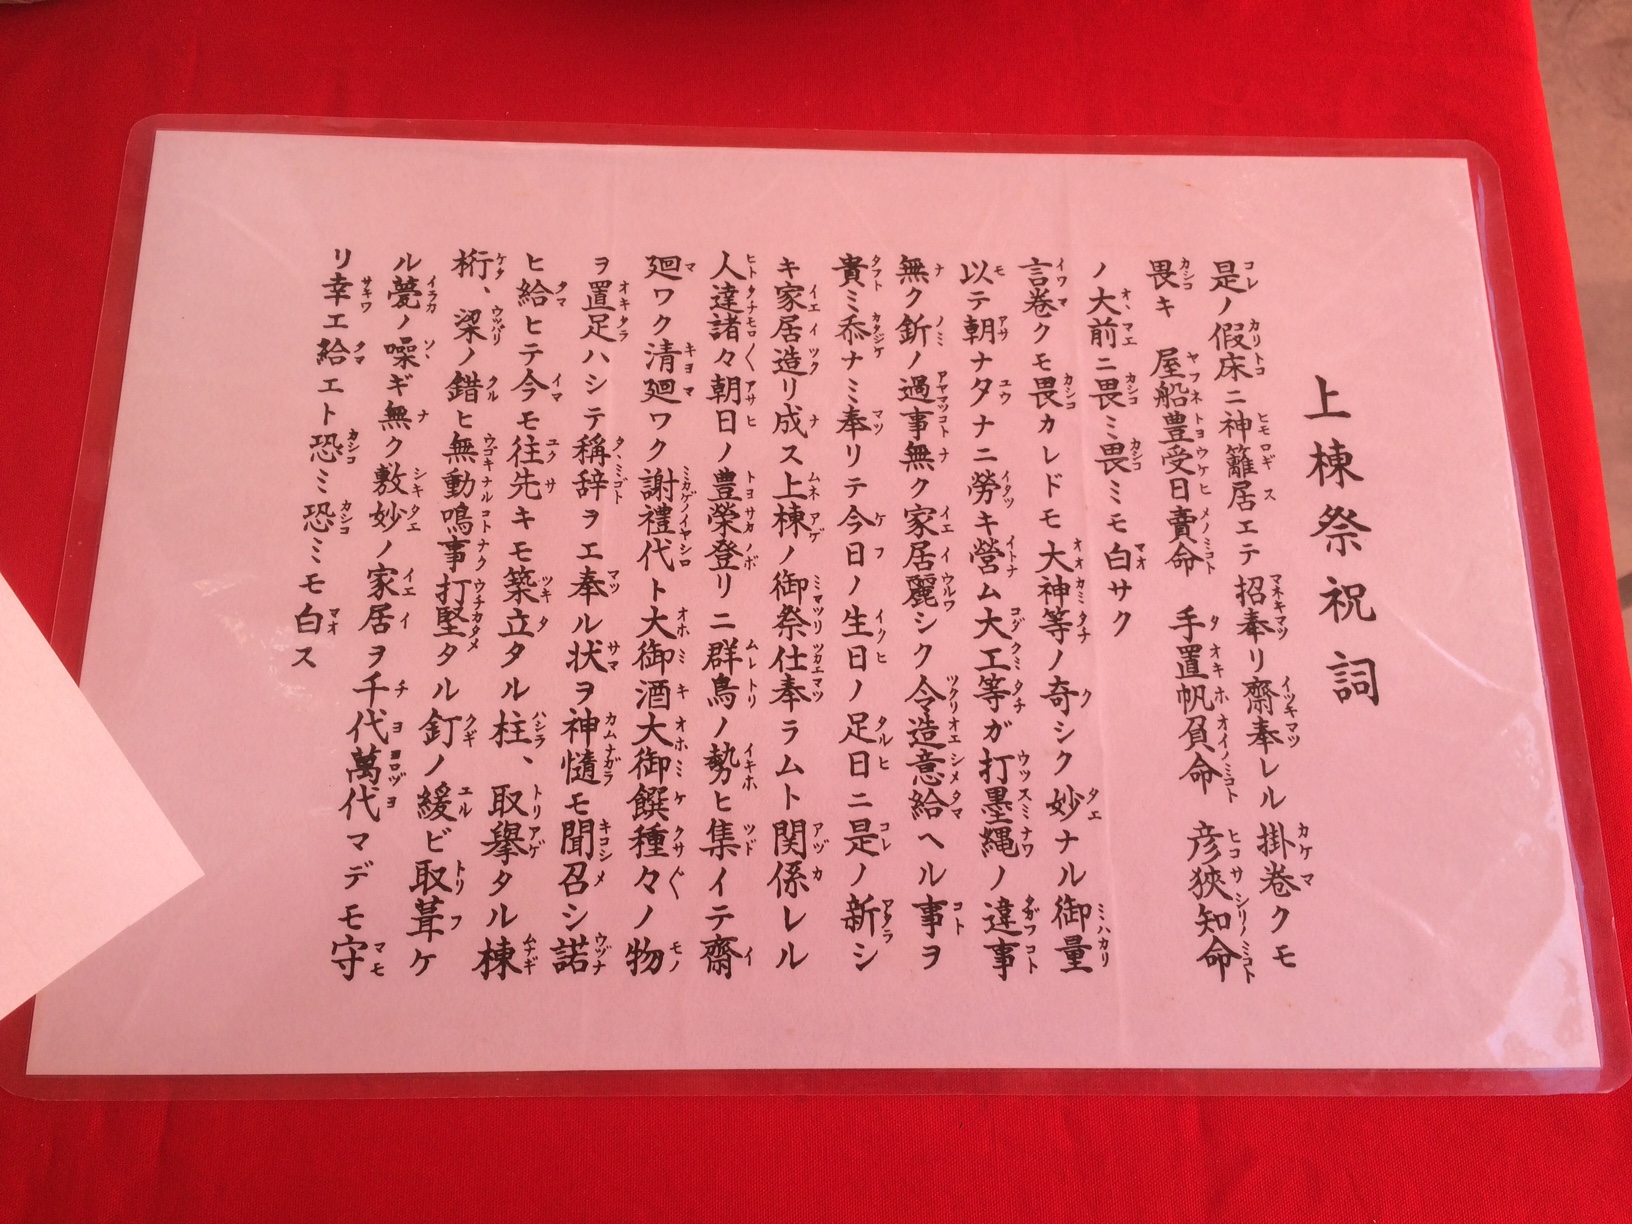 上棟祭祝詞
是ノ假床ニ神籬居エテ招奉リ齋奉レル掛卷クモ
畏キ 屋船豊受日賣命 手置帆負命 彦狹知命
ノ大前ニ畏ミ畏ミモ白サク
言卷クモ畏カレドモ大神等ノ奇シク妙ナル御量
以テ朝ナタナニ勞キ營ム大工等ガ打墨縄ノ違事
無ク釿ノ過事無ク家居麗シク令造意給ヘル事ヲ
貴ミ忝ナミ奉リテ今日ノ生日ノ足日ニ是ノ新シ
キ家居造リ成ス上棟ノ御祭仕奉ラムト関係レル
人達諸々朝日ノ豊榮登リニ群鳥ノ勢ヒ集イテ齋
廻ワク清廻ワク謝禮代ト大御酒大御饌種々ノ物
ヲ置足ハシテ稱辞ヲエ奉ル状ヲ神隨モ聞召シ諾
ヒ給ヒテ今モ往先キモ築立タル柱、取擧タル棟
桁、梁ノ錯ヒ無動鳴事打堅タル釘ノ緩ビ取葺ケ
ル甍ノ噪ギ無ク敷妙ノ家居ヲ千代萬代マデモ守
リ幸エ給エト恐ミ恐ミモ白ス